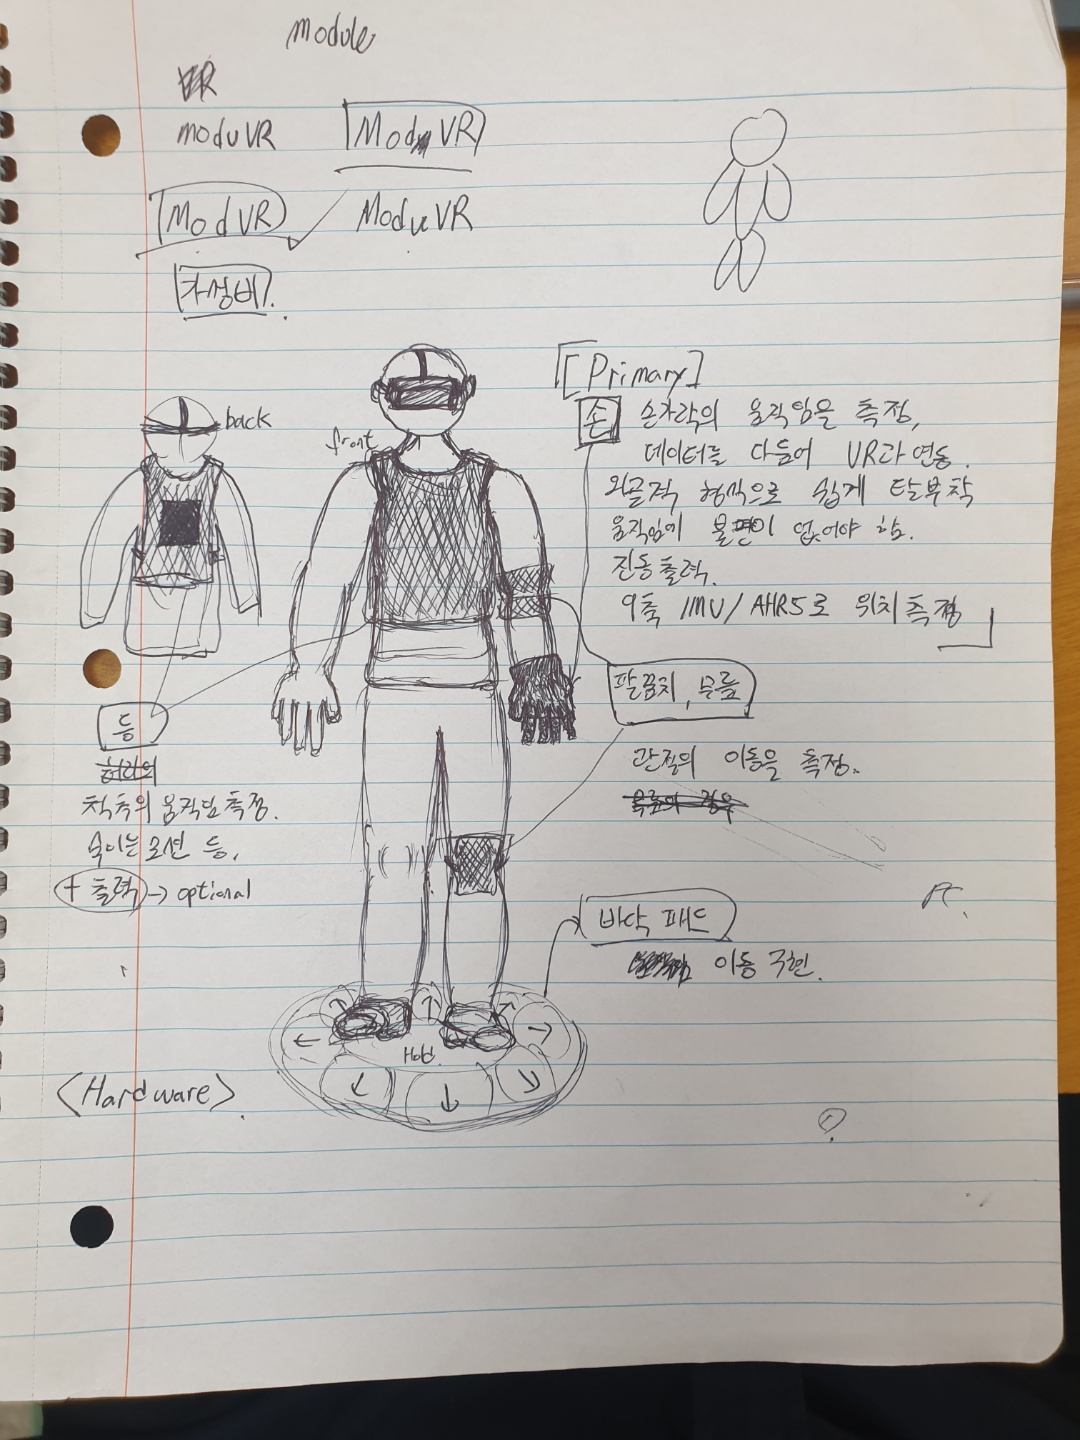 module
VR
moduVR
Mod VR
Mod VR
ModuVR
가성비.
[Primary]
손
손가락의 움직임을 측정,
데이터를 다듬어 VR과 연동.
외골격 형식으로 쉽게 탈부착
움직임에 불편이 없어야 함.
진동 출력.
9축 IMU/AHRS로 위치 측정
back
front
팔꿈치, 무릎
관절의 이동을 측정.
등
허리의
척추의 움직임 측정.
숙이는 모션 등.
+ 출력 → optional
바닥 패드
이동 구현.
← ↑ →
Hold
↙ ↓ ↘
<Hardware>.